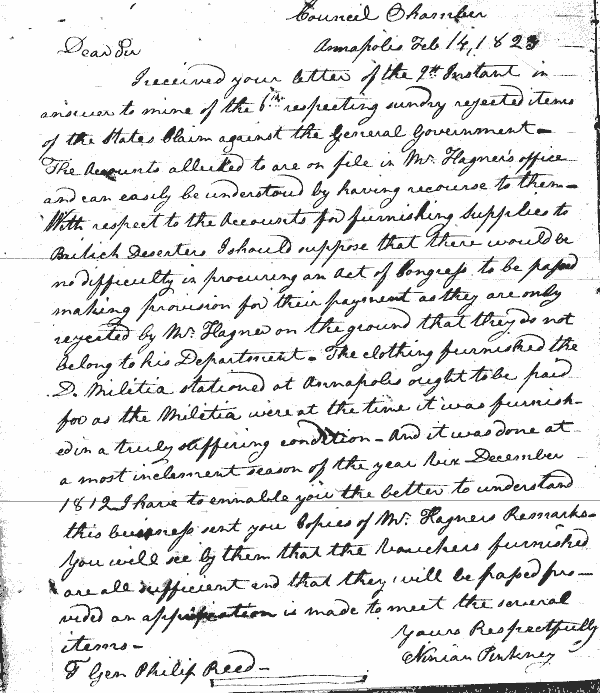 Council Chamber
Annapolis Feb 14, 1823
Dear Sir
I received your letter of the 9th Instant in
answer to mine of the 6th respecting sundry rejected items
of the States Claim against the General Government —
The Accounts allueded to are on file in Mr. Hagner's office
and can easily be understood by having recourse to them —
With respect to the Accounts for furnishing supplies to
British Deserters I should suppose that there would be
no difficulty in procuring an act of Congress, to be passed
making provision for their payment as they are only
rejected by Mr. Hagner on the ground that they do not
belong to his Department — The clothing furnished the
D. Militia stationed at Annapolis ought to be paid
for as the Militia were at the time it was furnish-
ed in a truly suffering condition — And it was done at
a most inclement season of the year Viz December
1812 I have to ennable you the better to understand
this business sent you Copies of Mr. Hagners Remarks —
You will see by them that the Vouchers furnished
are all sufficient and that they will be passed pro-
vided an appropriation is made to meet the several
items —
Yours Respectfully
Ninian Pinkney
Gen Philip Reed —